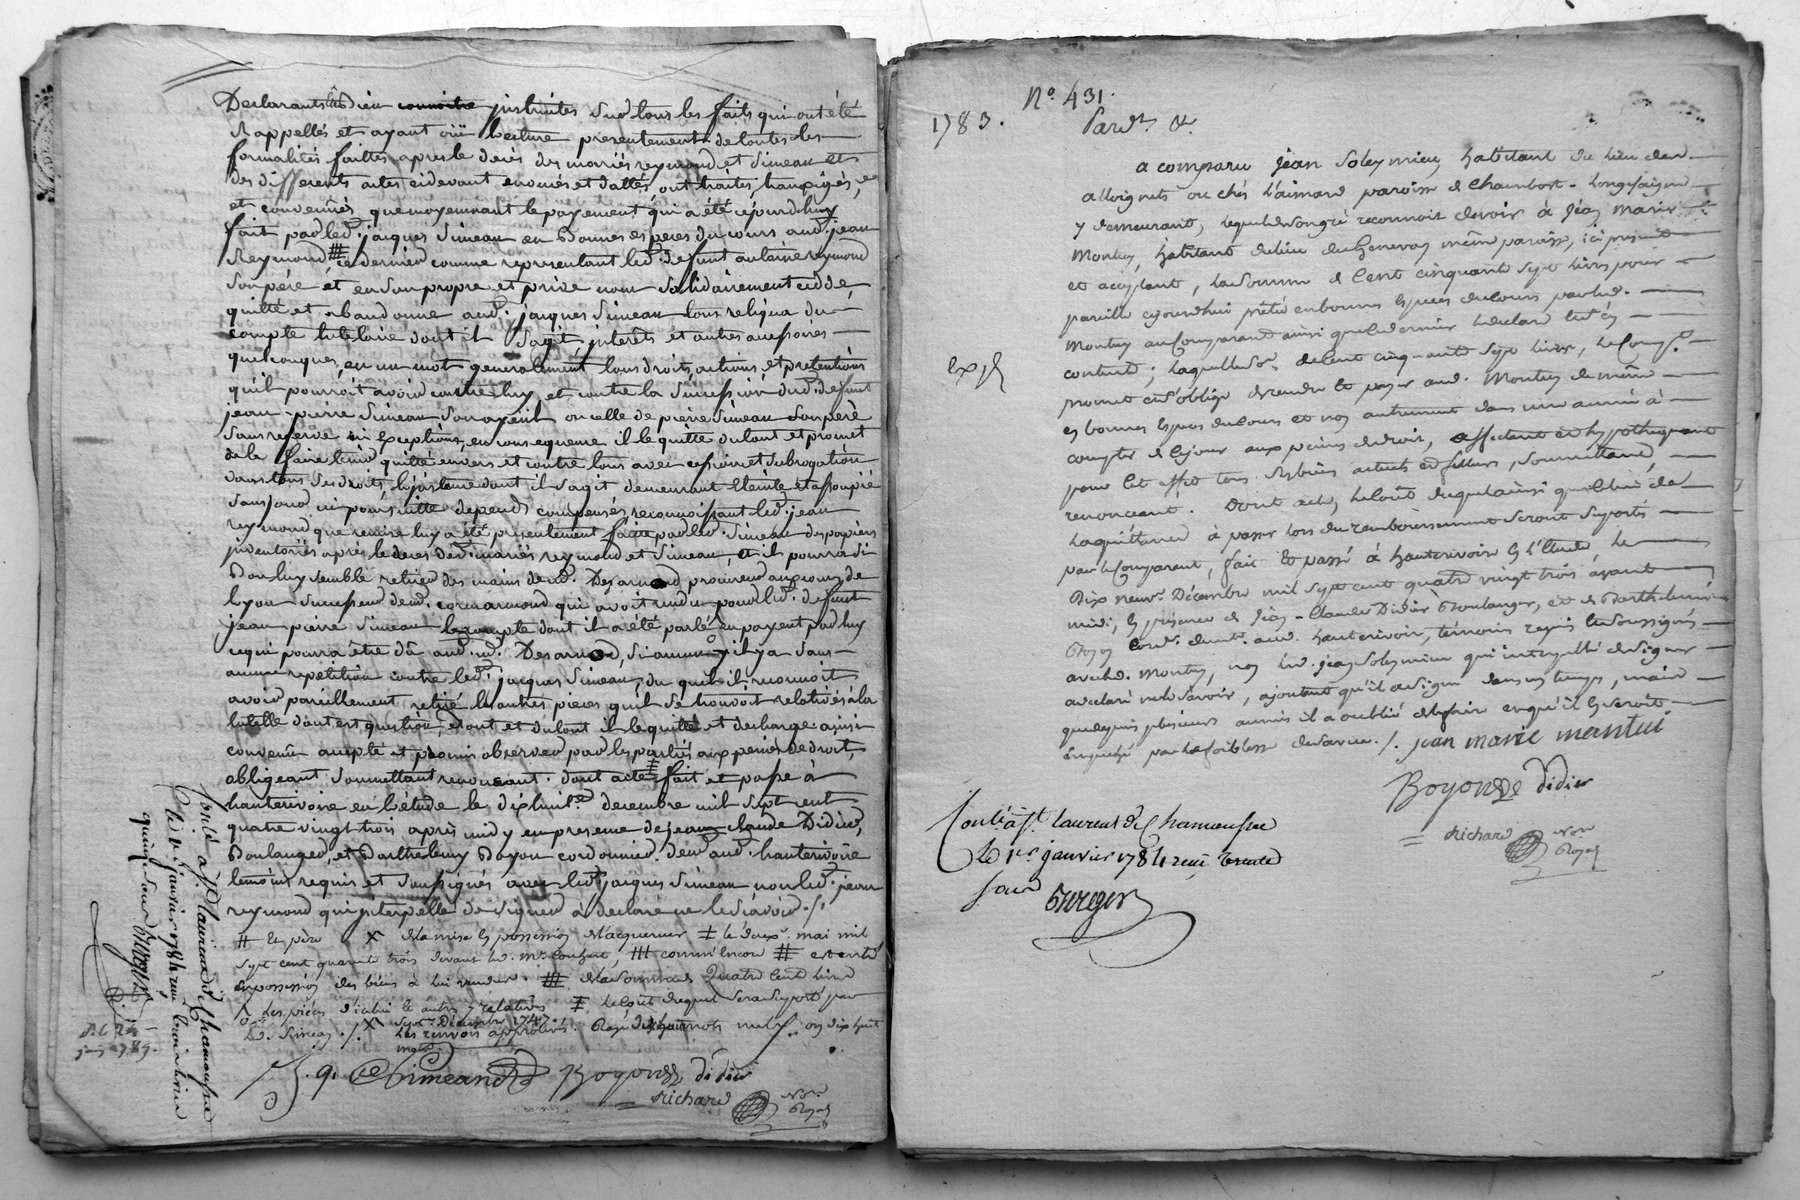 Declarants led. dieu connoitre instruites sur tous les faits qui ont été
rappellés et ayant oüi lecture presentement de toutes les
formalités faittes apres le décés des mariés reymond et Simean et
des differents actes cidevant enoncés et dattés, ont traités, transigés,
et convennës que moyennant le payement qui a été cejourdhuy
fait par led. jacques Simean en bonnes especes du cours aud. jean
Reymond, ce dernier comme representant led. defunt antoine reymond
son père et en son propre et privé nom solidairement cedde,
quitte et abandonne aud. jacques Simean tous reliqua du
compte tutelaire dont il s'agit, interets et autres accessoires
quelconques, en un mot generalement tous droits, actions, et pretentions
qu'il pourroit avoir contre luy, et contre la succession dud. defunt
jean-pierre Simean son oyeul ou celle de pierre Simean son père
sans reserve ni exceptions, en consequence il le quitte du tout et promet
de le faire tenir quitte envers et contre tous avec cession et subrogation
dans tous ses droits, l'instance dont il s'agit demeurant éteinte et assoupie
sans fond ni poursuitte depends compensés reconnoissant led. jean
reymond que remise luy a été presentement faitte par led. Simean des papiers
inventoriés après le deces desd. mariés reymond et Simean et il pourra si
bon luy semble retirer des mains de md. Desarnod, procureur aux cours de
lyon successeur de md. cormarmond qui avoit rendu pour led. defunt
jean-pierre Simean le compte dont il a été parlé en payent par luy
ce qui pourra être dû aud. md. Desarnod, si aucun y il y a sans
aucune repetition contre led. jacques Simean, du quel il reconnoit
avoir pareillement retiré les autres pieces qu'il se trouvoit relatives à la
tutelle dont est question, et tout et du tout il le quitte et decharge ainsi
convenu accepté et promis observer par les parties aux peines de droit,
obligeant, soumettant renonceant. dont acte fait et passé à
hauterivoire en l'étude le dixhuite. decembre mil sept cent
quatre vingt trois après midy en presence de jean claude Didier,
Boulanger, et Barthelemy Boyon cordonnier dem. aud. hauterivoire
temoins requis et soussignés avec led. jacques Simean non led. jean
reymond qui interpellé de signer à declaré ne le sçavoir ./.
# Et père X de la mise en possession de l'acquereur ‡ le deux. mai mil
sept cent quarante trois devant led. Me. , comm'encore # et entré
en possession des biens à lui vendus. # de la somme de Quatre Cent livres
les pieces d'icelui le autres y relatives ‡ le coût duquel sera suporté par
led. Simean ./. X sept. Décembre 1747.
les renvois approuvés. Rayé dix huit mots nuls / on dix huit
mots
J. q. Simeand Boyon Didier
Richard Nore.
Royal
Conlé à St. laurent de Chamousset
le 1er janvier 1784 reçu trois livres
quinze sous Berger
No. 431.
1783. Pardt. &.
a comparu jean Soleymieu, habitant du lieu des
alloignets ou chés l'aimard paroisse de Chambost-Longessaigne
y demeurant, lequel de son gré reconnoit devoir à jean marie
Montuy, habitant du lieu du Genevay même paroisse, ici present
et acceptant, la somme de Cent cinquante sept livres pour
pareille cejourdhui prêtée en bonnes especes du cours par led.
Montuy au Comparant ainsi que ce dernier le declare dit en
content; laquelle so. de cent cinquante sept livres, le Compt.
expé
promet et s'oblige de rendre et payer aud. Montuy de même
en bonnes especes du cours et non autrement dans une année à
compter de ce jour aux peines de droit, affectant et hypothequant
pour cet effet tous ses biens actuels et futurs, soumettant,
renonceant. Dont acte, le coût duquel ainsi que celui de
la quittance à passer lors du remboursement seront suportés
par le Comparant, fait et passé à hauterivoire en l'étude, le
Dix neuve. Décembre mil sept cent quatre vingt trois avant
midi, en présence de jean-Claude Didier Boulanger, et de Barthelemi
Boyon cord. demt. aud. hauterivoire, témoins requis et soussignés
avec led. Montuy, non led. jean Soleymieu qui interpellé de signer
a declaré ne le savoir, ajoutant qu'il a signé dans un temps, mais
que depuis plusieurs années il a oublié de le faire en qu'il en seroit
empeché par la foiblesse de sa vue ./. jean marie mantui
Boyon Didier
Richard Nore
Royal
Conlé à St. laurent de Chamousset
Le 1er janvier 1784 reçu trente
sous Berger